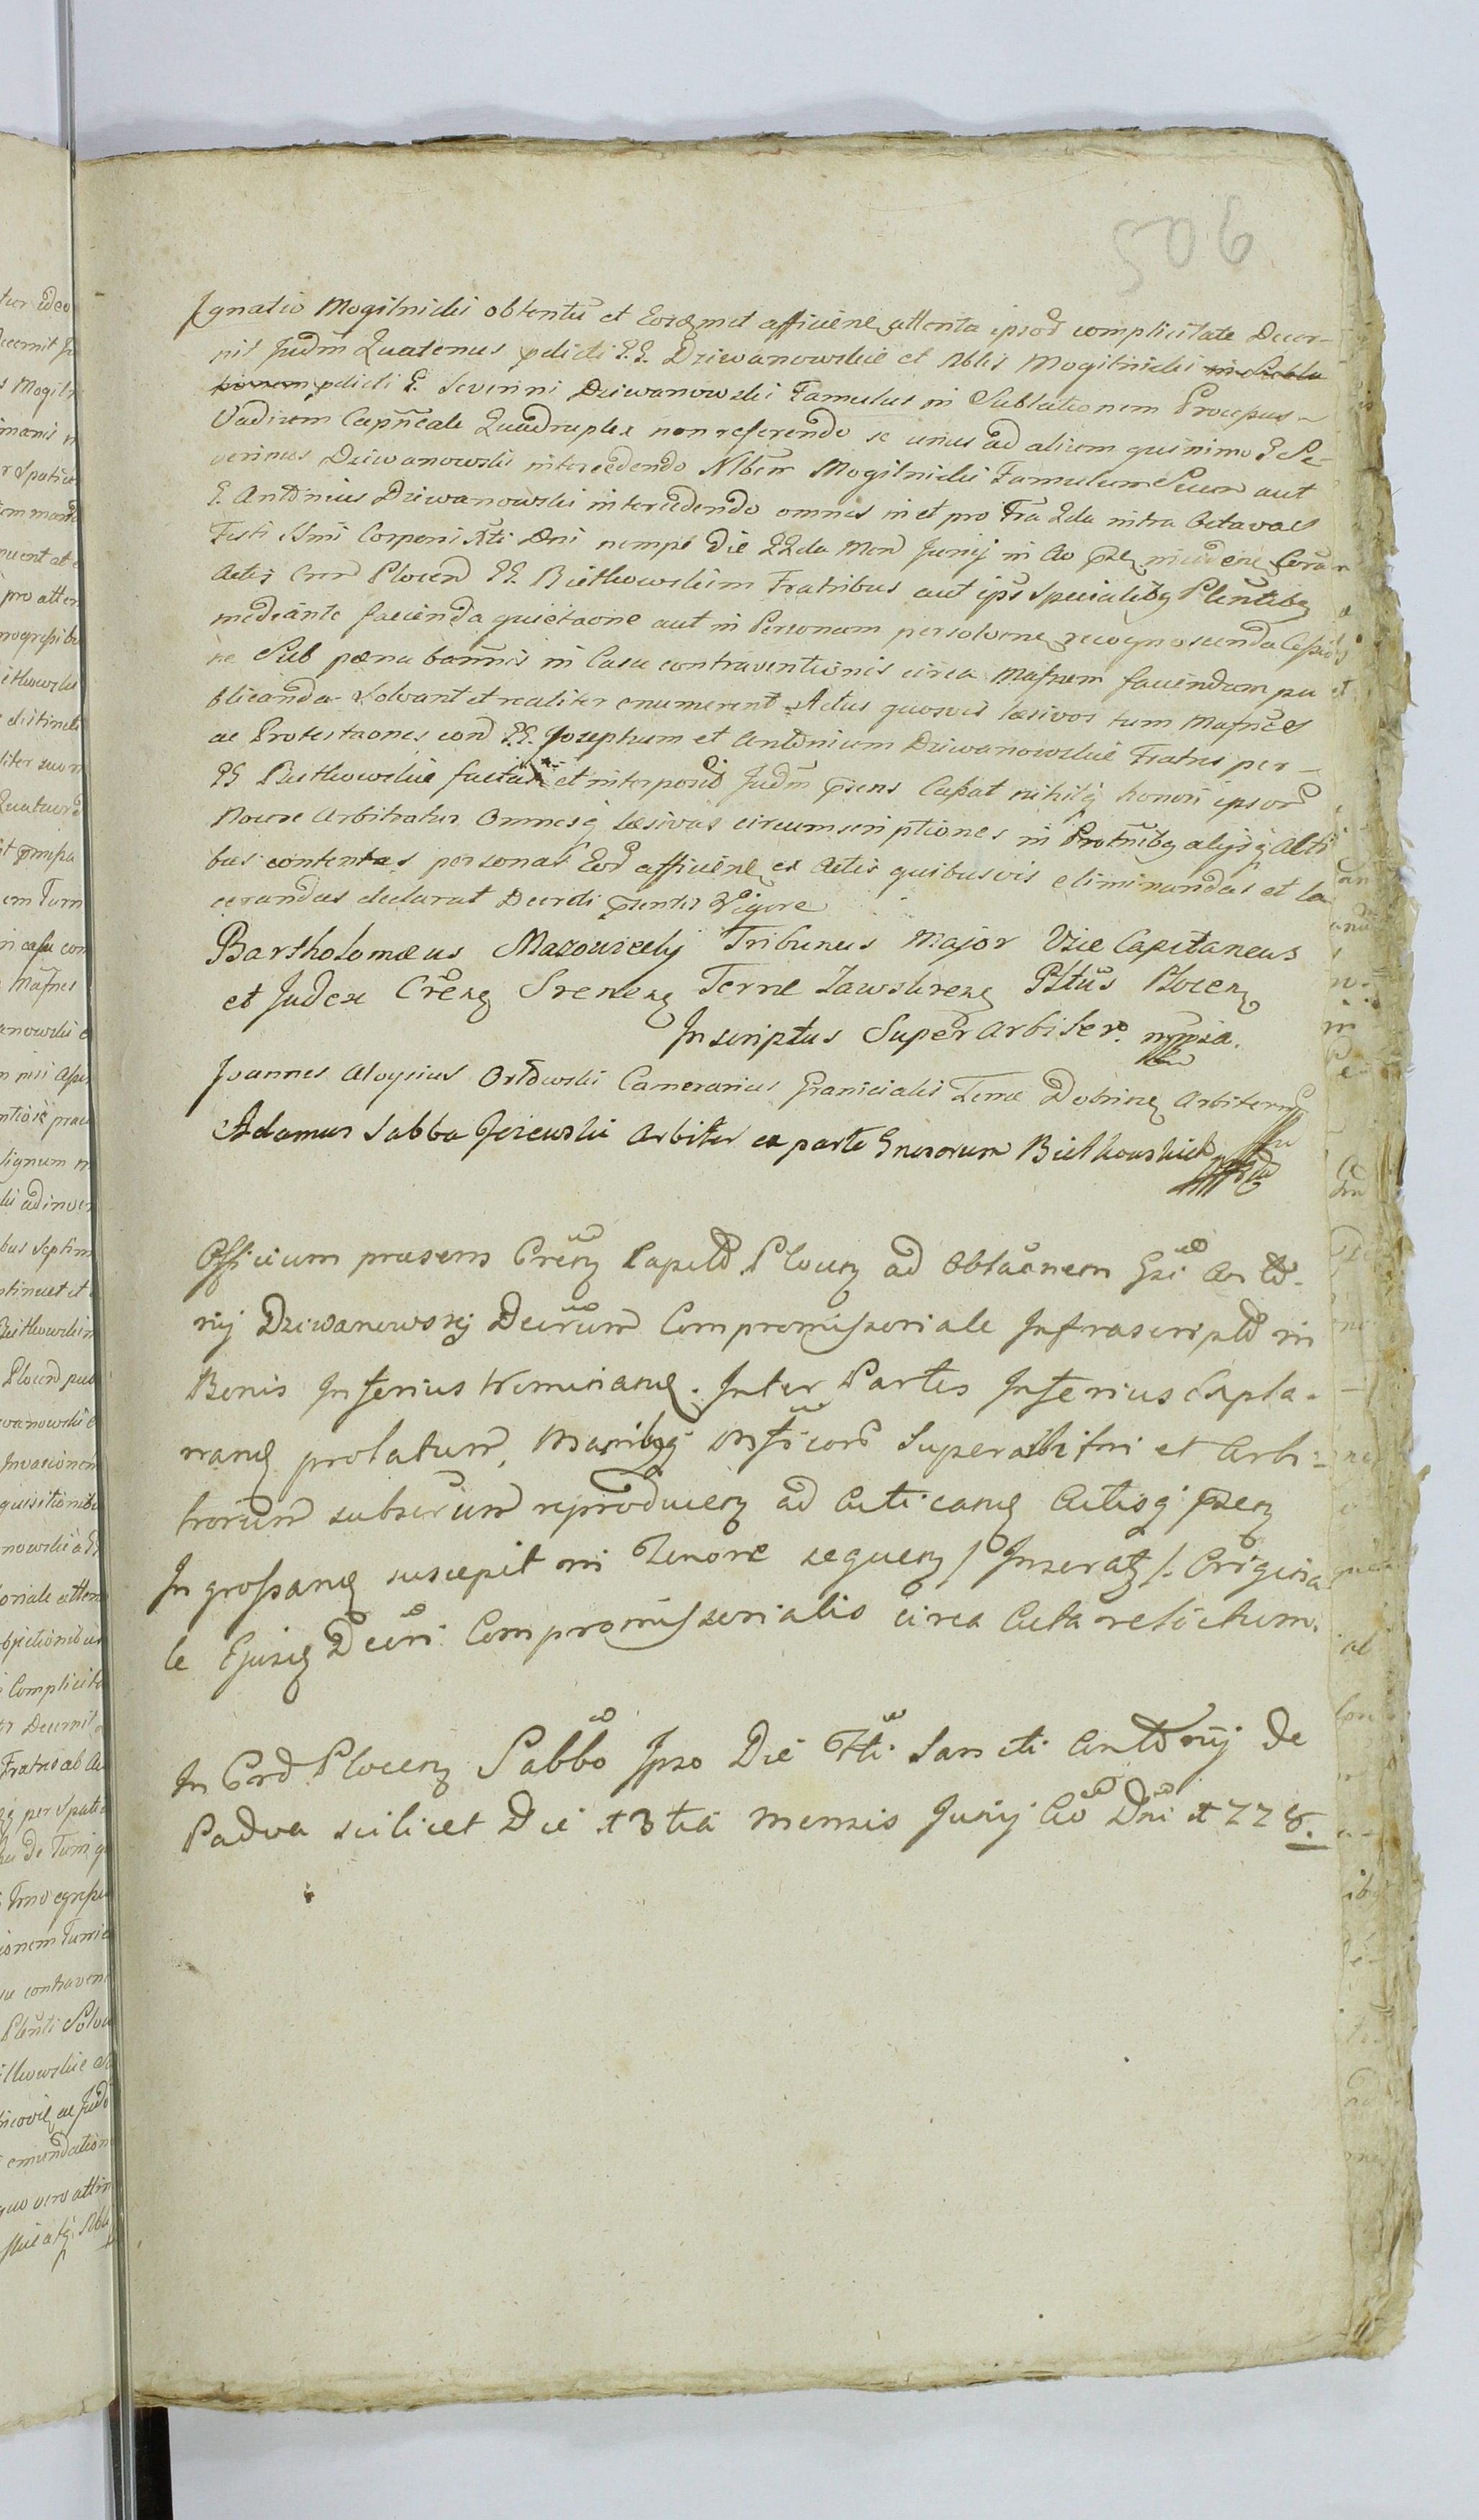 506
Ignatio Mogilnicki obtentũ et Eosdemet afficiên attenta ipsoȓ complicitate Decer-
nit Judm̃ Quatenus pdicti PP. Dziwanowskie et Nblis Mogilnicki in Subla
tionem pdicti P. Severini Dziwanowski Famulus in Sublationem Procepus-
Vadium Capñeale Quadruplex non referendo se unus ad alium quinimo P Se-
verinus Dziwanowski intercedendo Nlbem Mogilnicki Famulum Suum aut
P. Antonius Dziwanowski intercedendo omnes in et pro Fra 2da intra Octavas
Festi SSmi Corporis Xti Dni nempe Die 22da Men Junij in Ao pñe inciden Coram
Actis Cren Plocen PP. Bietkowskim Fratribus aut ipš Specialibq Plentibq
mediante facienda quietaone aut in Personam persolvene recognoscenda Cessio
ne Sub pœna bannis in Casu contraventionis circa Mafnem favendam pu
blicanda Solvant et realiter enumerent Actus quosvis læsivos tum Mafnes
ac Protestaones con PP. Josephum et Antonium Dziwanowskie Fratres per-
PP Bietkowskie factas et interposit Judm̃ psens Cassat nihilq honori ipsor
Nocere Arbitratur Omnesq læsivas circumscriptiones in Protnibq alijsq Acti
bus contentas personas Eod afficiene ex Actis quibusvis eliminandas et la
cerandas declarat Decreti psentis Vigore
Bartholomæus Mazowieckij Tribunus Major Vice Capitaneus
et Judex Crens Srenens Terræ Zawskrens Pltus Plocens
Inscriptus Super Arbiter mppia.
Joannes Aloysius Orłowski Camerarius Granicialis Terræ Dobrinens Arbiter mp
Adamus Sabba Jeżewski Arbiter ex parte Gnosorum Bietkowskich
Officium præsens Crens Capitl Plocens ad Oblaonem Gsi Anto-
nij Dziwanowskij Decrum Compromissoriale Infrascriptm in
Bonis Inferius Nominand. Inter Partes Inferius Expla-
nand prolatum, Manibq Mficor Superarbitri et Arbi-
trorum subscrum reproducens ad Acticand Actisq psens
Ingrossand suscepit in Tenore sequens /: Inserat :/ Origina
le Ejusq Decri Compromissorialis circa Acta relictum.
In Crd Plocens Sabbo Ipso Die Fti Sancti Antonij de
Padva scilicet Die 13tia mensis Junij Ao Dni 1778.